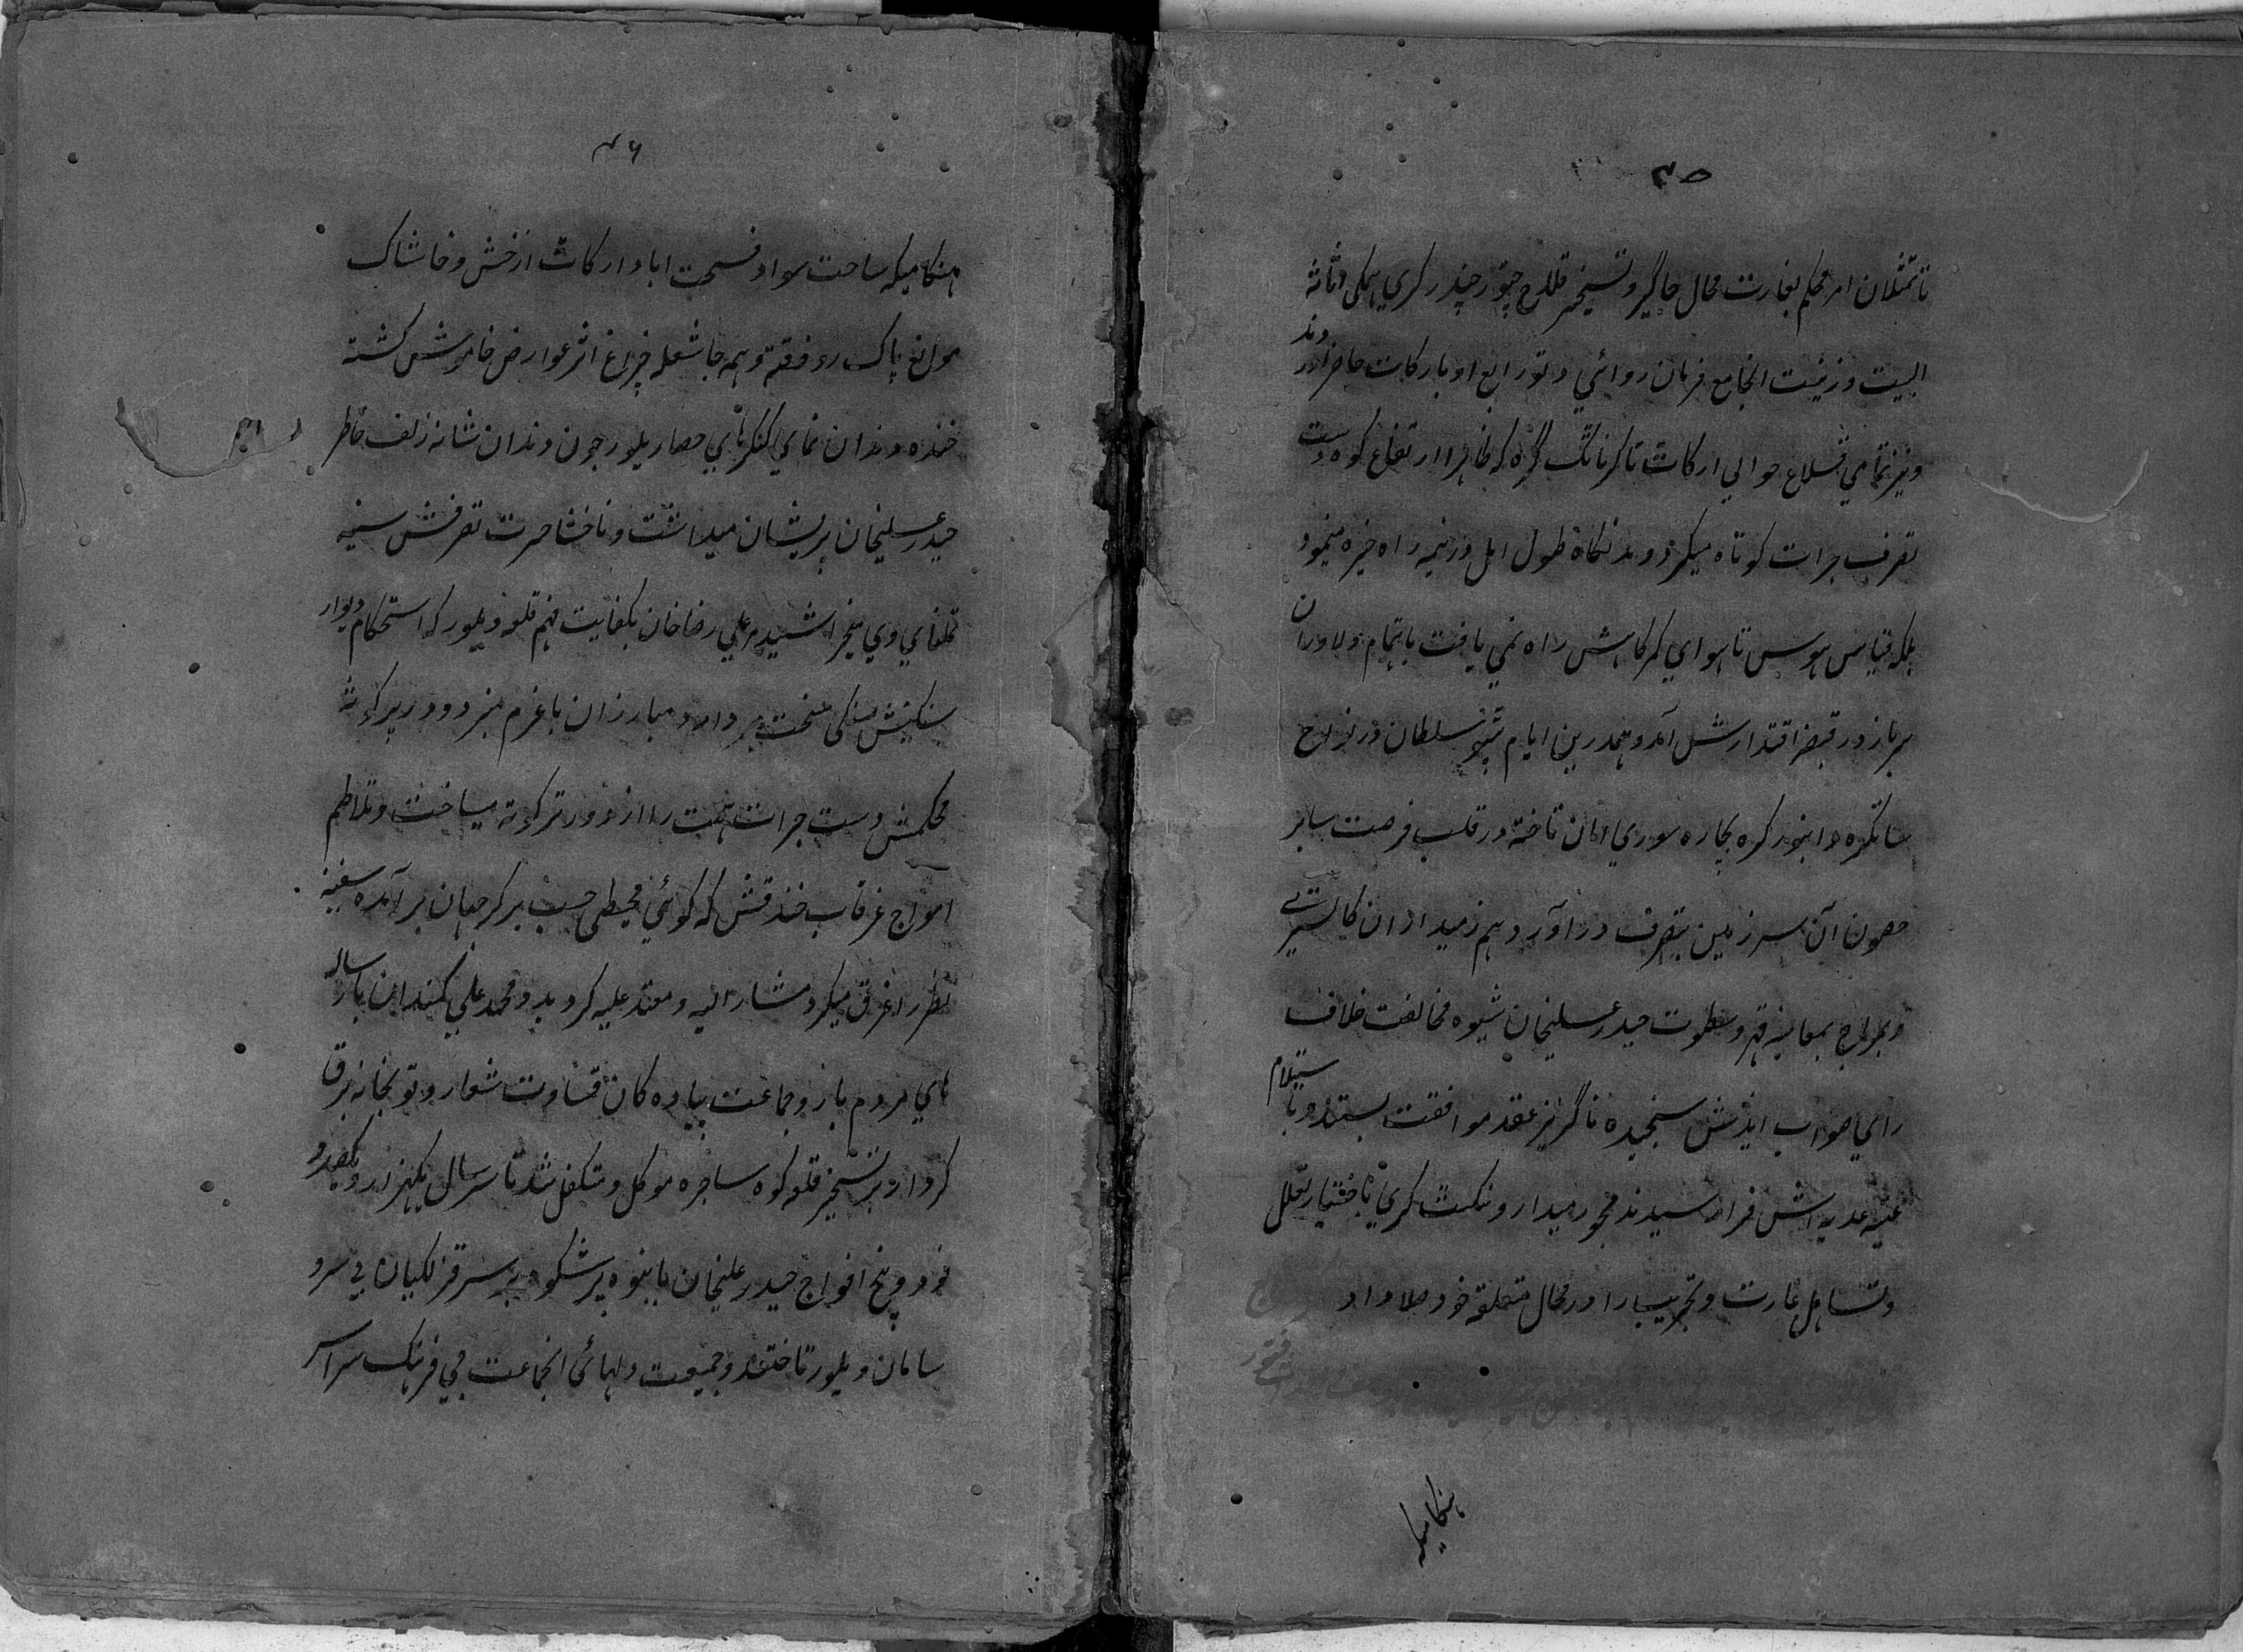 ۴۵
تا متمثلان امر محکم بغارت محال جاگیر و تسخیر قلاع چتور چندرکری همکی اثاثه
البیت و زینت الجامع فرمان روائی و توابع او بارکات حاضر آوردند
و نیز تمامی قلاع حوالی ارکات تا کرناتک گره که ظاهرا ارتفاع کوه دست
تصرف جرات کوتاه میکرد و مد نگاه طول امل در نیمه راه خیره مینمود
بلکه قیاس هوس تا هوای کمرکاهش راه نمی یافت باهتمام دلاوران
سرباز در قبض اقتدارش آمد و همدرین ایام تیپو سلطان در نواح
ساتکره و انبور کره بچاره سوری امان تاخته در قلب فرصت سایر
حصون آن سرزمین بتصرف در آورد و هم زمیداران کالستری
و بمراج بمعاینه قهر و سطوت حیدر علیخان شیوه مخالفت خلاف
رای صواب اندیش سنجیده ناگزیر عقد موافقت بستند و باستلام
عتبه علیه اش فرا رسیدند مجور میدار ونکت کری باختیار تعلل
و تساهل غارت و تخریب را در محال متعلقه خود صلا داد
هنکامیکه
۴۶
هنکامیکه ساحت سواد فسحت اباد ارکات از خش و خاشاک
موانع پاک رو فقه و همه جا شعله چراغ اثر عوارض خاموش کشته
خنده دندان نمای کنکرهای حصار یلور چون دندان شانه زلف خاطر
حیدر علیخان پریشان میداشت و ناخنا حسرت تصرفش سینه
تمنای وی میخراشید میر علی رضا خان بکفایت مهم قلعه ویلور که استحکام دیوار
سنکینش سنکی سخت بر دارد مبارزان با عزم میزد و دور پر کرته
محکمش دست جرات همت را از دور ترکوته میساخت و تلاطم
امواج غرقاب خندقش که کوئی محیطی حسب بر کر جهان بر آمده سفینه
نظر را غرق میکرد مشار الیه و معتد علیه کردید و محمد علی کمندان بارساله
های مردم بار و جماعت پیاده کان قساوت شعار و توبخانه برق
کردار بر تسخیر قلعه کوه ساجره موکل و متکفل شد تا سر سال یکهزار و یکصد و
نود و پنج افواج حیدر علیخان بانبوه پر شکوه بر سر قزلکیان بی سر و
سامان ویلور تاختند و جمیعت دلهائی انجماعت بی فرهنک سراسر